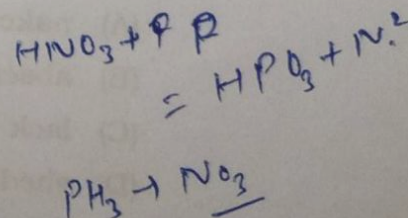 HNO3 + P P
= HPO3 + N.2
PH3 → NO3